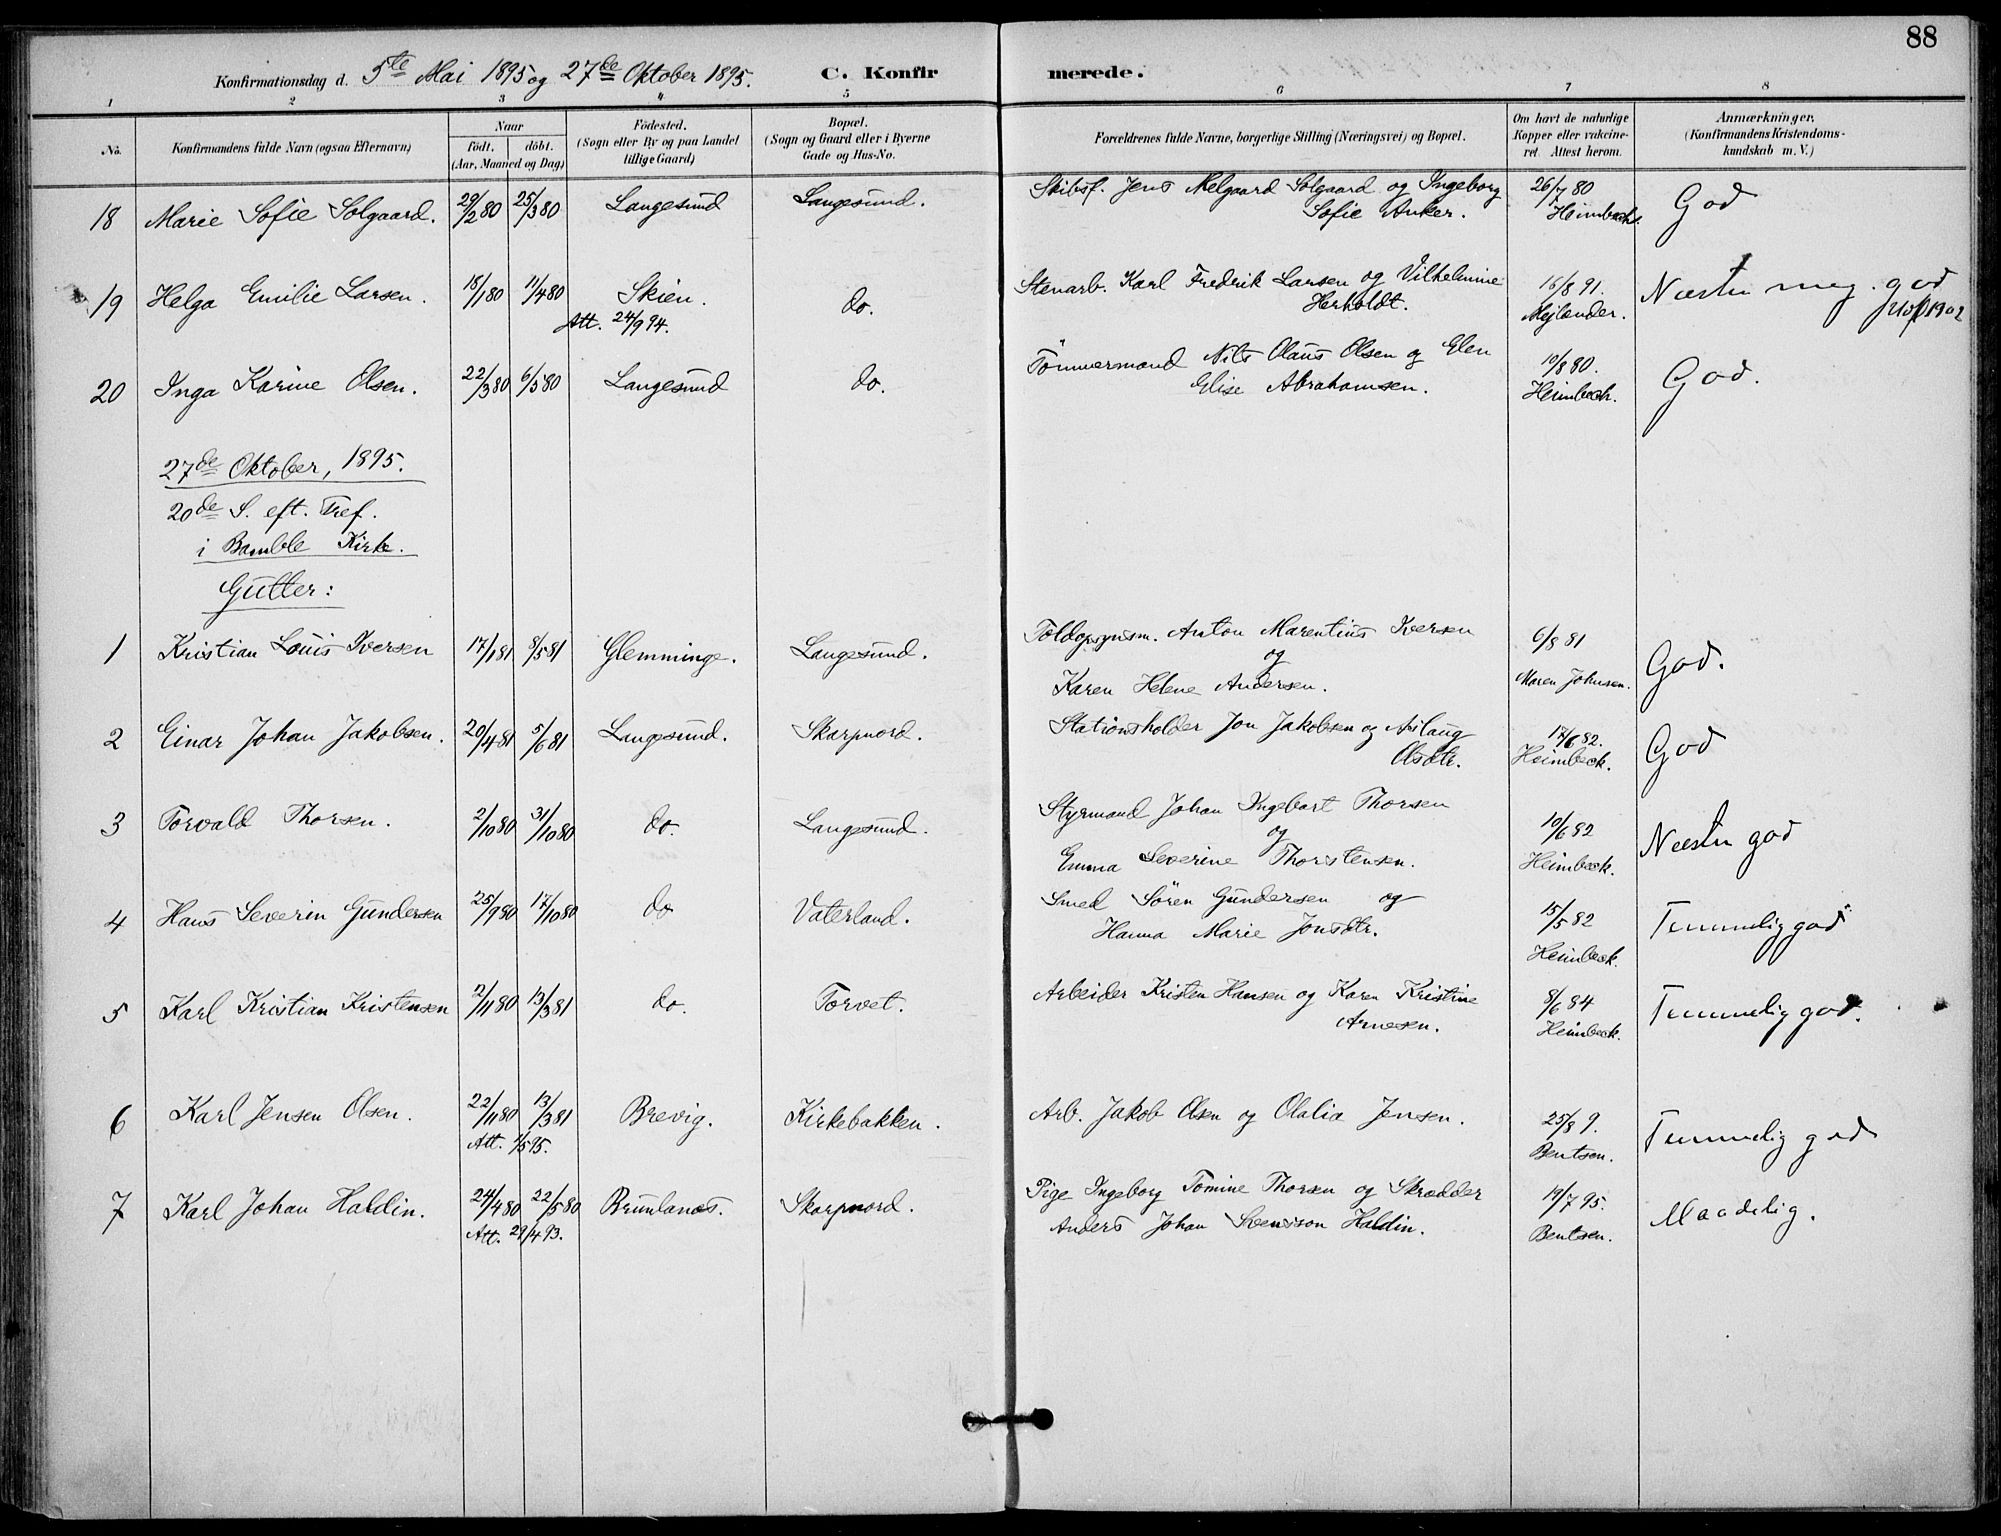 88
Konfirmationsdag d. 5te Mai 1895 og 27de Oktober 1895. C. Konfirmerede.
1 2 3 4 5 6 7 8
No. Konfirmandens fulde Navn (ogsaa Efternavn) Naar födt. döbt. (Aar, Maaned og Dag) Födested. (Sogn eller By og paa Landet tillige Gaard) Bopæl. (Sogn og Gaard eller i Byerne Gade og Hus-No. Forældrenes fulde Navne, borgerlige Stilling (Næringsvei) og Bopæl. Om havt de naturlige Kopper eller vaccineret. Attest herom. Anmærkninger. (Konfirmandens Kristendomskundskab m. V.)
18 Marie Sofie Solgaard. 29/2 80 25/3 80 Langesund Langesund. Skibsf. Jens Melgaard Solgaard og Ingeborg 26/7 80 God
Sofie Anker. Heimbeck.
19 Helga Emilie Larsen. 18/1 80 11/4 80 Skien. do. Stenarb. Karl Fredrik Larsen og Vilhelmine 16/8 91. Næsten meg. god
Att. 24/9 94. Herholdt. Mejlænder. 1902
20 Inga Karine Olsen. 22/3 80 6/5 80 Langesund do. Tömmermand Nils Olaus Olsen og Elen 10/8 80. God.
Elise Abrahamsen. Heimbeck.
27de Oktober, 1895.
20de S. eft. Tref.
i Bamble Kirke.
Gutter:
1 Kristian Louis Iversen 17/1 81 8/5 81 Glemminge. Langesund. Toldopsynsm. Anton Marentius Iversen 6/8 81 God.
og
Karen Helene Andersen. Maren Johnsen.
2 Einar Johan Jakobsen. 20/4 81 5/6 81 Langesund. Skarpnord. Stationsholder Jon Jakobsen og Aslaug 17/6 82. God
Olsdtr. Heimbeck.
3 Torvald Thorsen. 2/10 80 31/10 80 do. Langesund. Styrmand Johan Ingebart Thorsen 10/6 82 Næsten god
og
Emma Severine Thorstensen. Heimbeck.
4 Hans Severin Gundersen 25/9 80 17/10 80 do Vaterland. Smed Sören Gundersen og 15/5 82 Temmelig god
Hanna Marie Jonsdtr. Heimbeck.
5 Karl Kristian Kristensen 2/11 80 13/3 81 do. Torvet. Arbeider Kristen Hansen og Karen Kristine 8/6 84 Temmelig god.
Arnesen. Heimbeck.
6 Karl Jensen Olsen. 22/11 80 13/3 81 Brevig. Kirkebakken. Arb. Jakob Olsen og Olalia Jensen. 25/8 9. Temmelig god
Att. 1/5 95. Bentsen.
7 Karl Johan Haldin. 24/4 80 22/5 80 Brunlanæs. Skarpnord. Pige Ingeborg Tomine Thorsen og Skrædder 19/7 95. Maadelig.
Att. 29/4 93. Anders Johan Svensson Haldin. Bentsen.